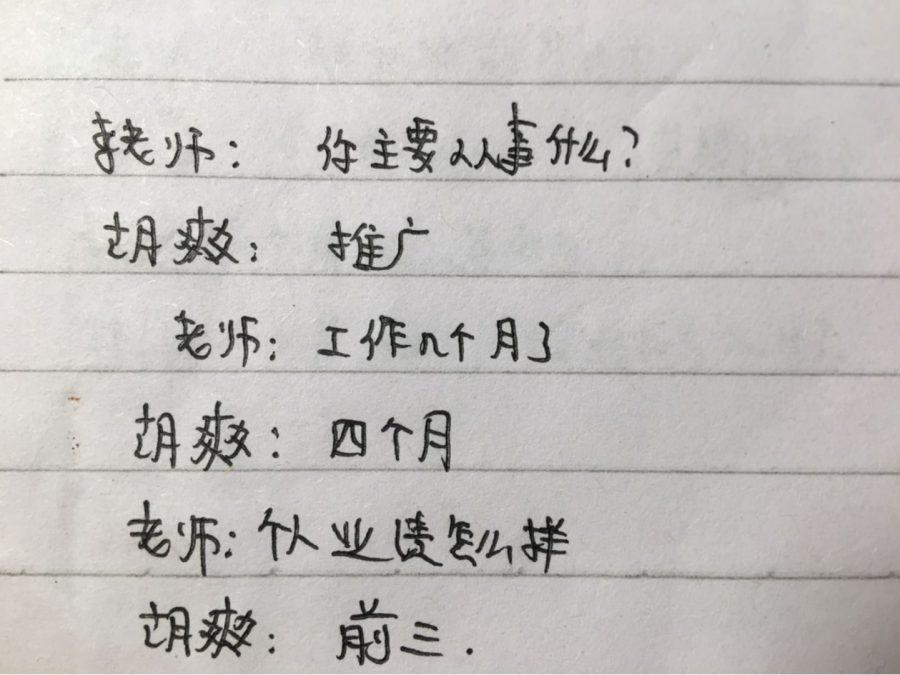 李老师： 你主要从事什么？
胡爽： 推广
老师： 工作几个月了
胡爽： 四个月
老师：个人业绩怎么样
胡爽： 前三.